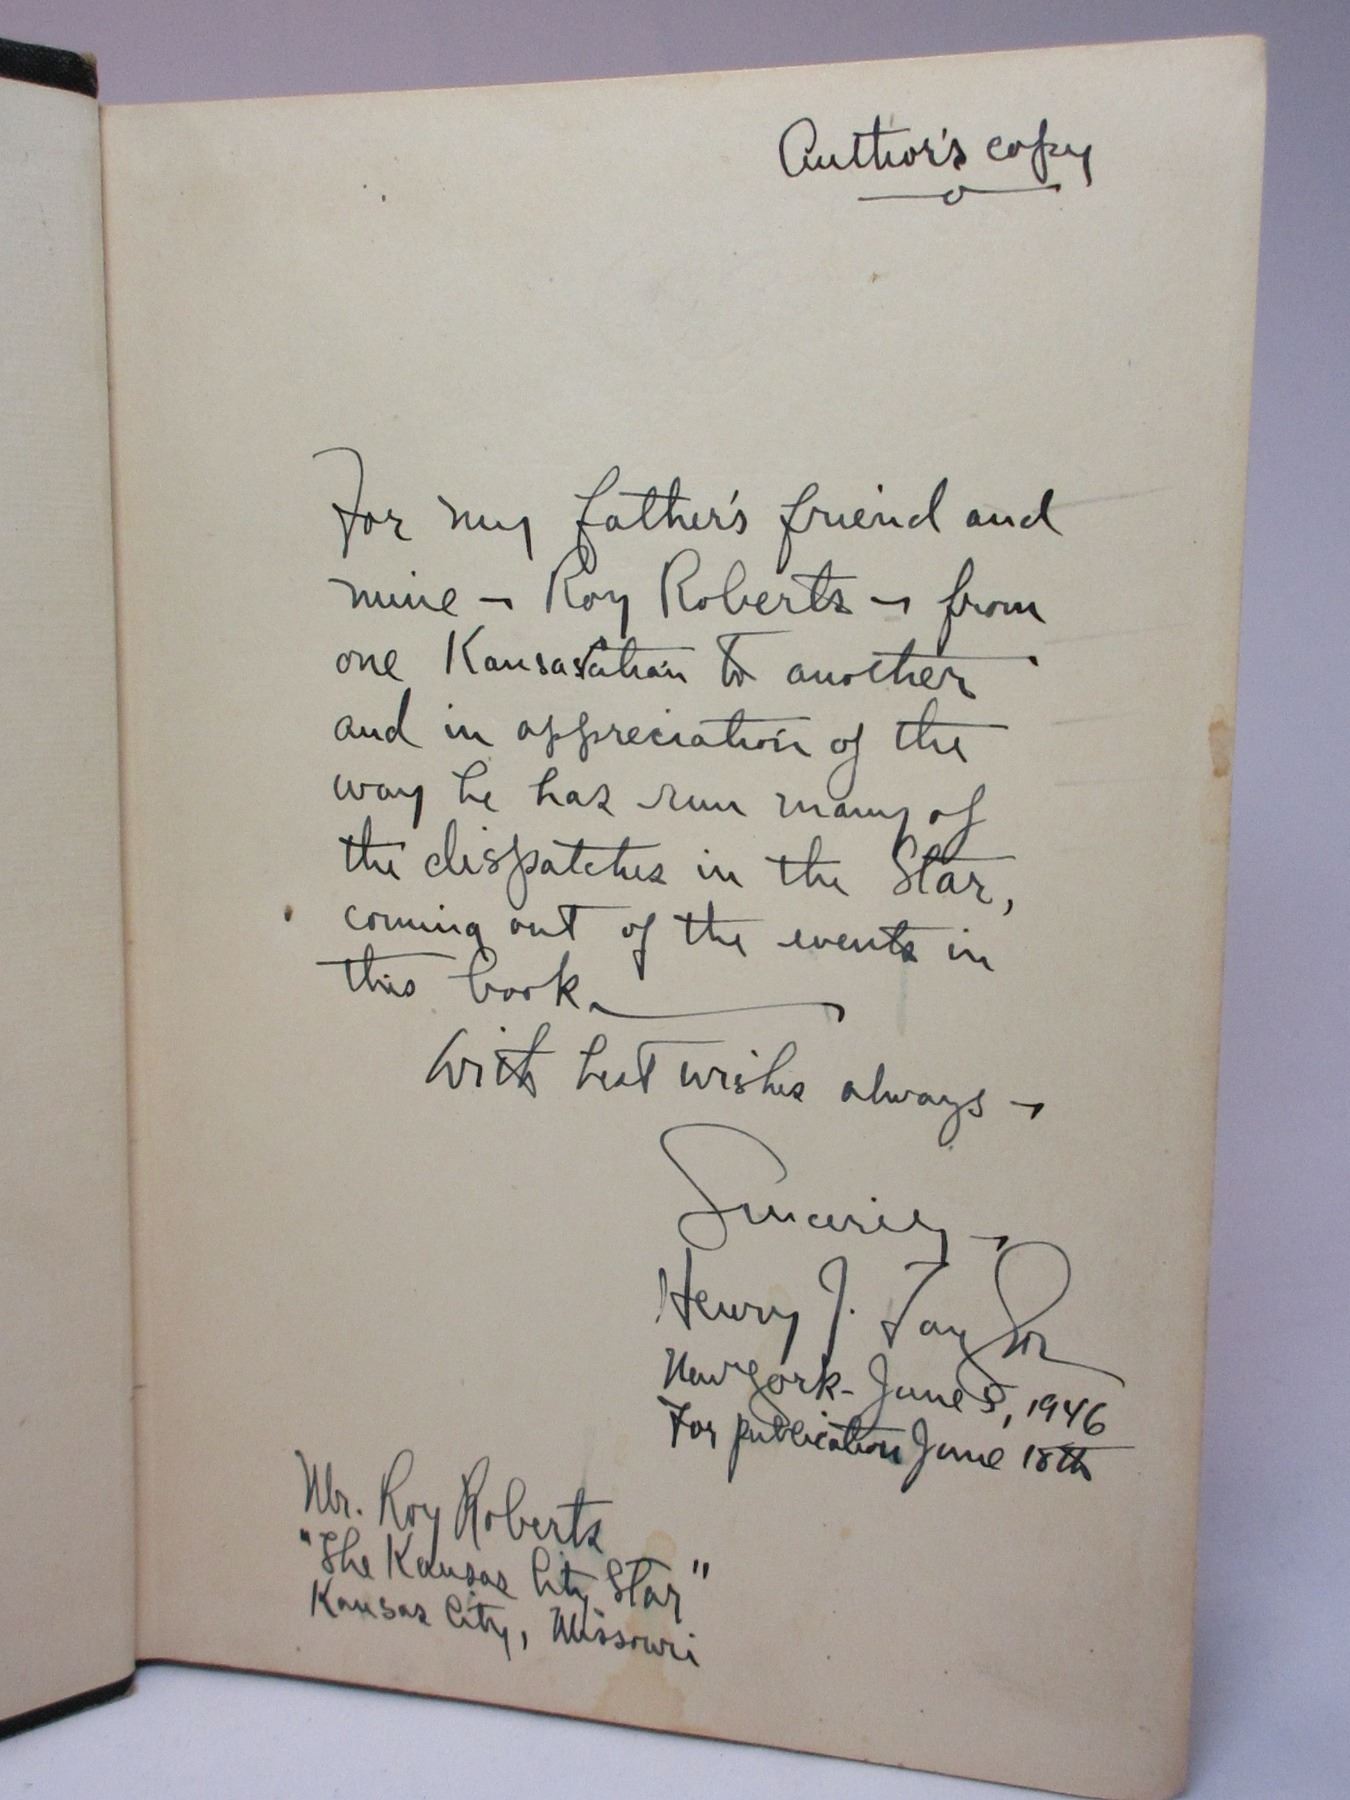 Author's copy
For my father's friend and
mine – Roy Roberts – from
one Kansascitian to another
and in appreciation of the
way he has run many of
the dispatches in the Star,
coming out of the events in
this book.
With best wishes always –
Sincerely –
Henry J. Taylor
New York – June 5, 1946
For publication June 18th
Mr. Roy Roberts
"The Kansas City Star"
Kansas City, Missouri